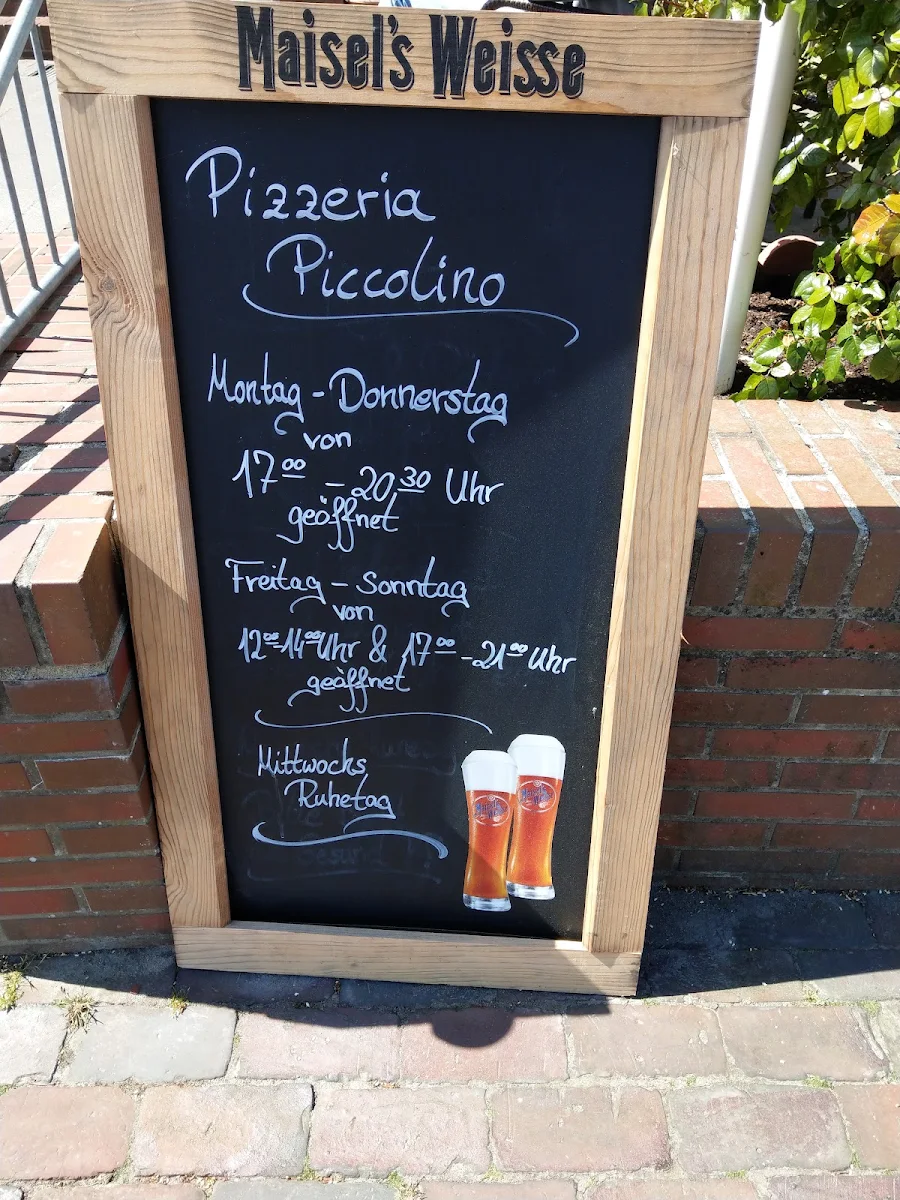 Maisel's Weisse
Pizzeria
Piccolino
Montag - Donnerstag
von
17⁰⁰ - 20,³⁰ Uhr
geöffnet
Freitag - Sonntag
von
12⁰⁰-14⁰⁰Uhr & 17⁰⁰ - 21⁰⁰ Uhr
geöffnet
Mittwochs
Ruhetag